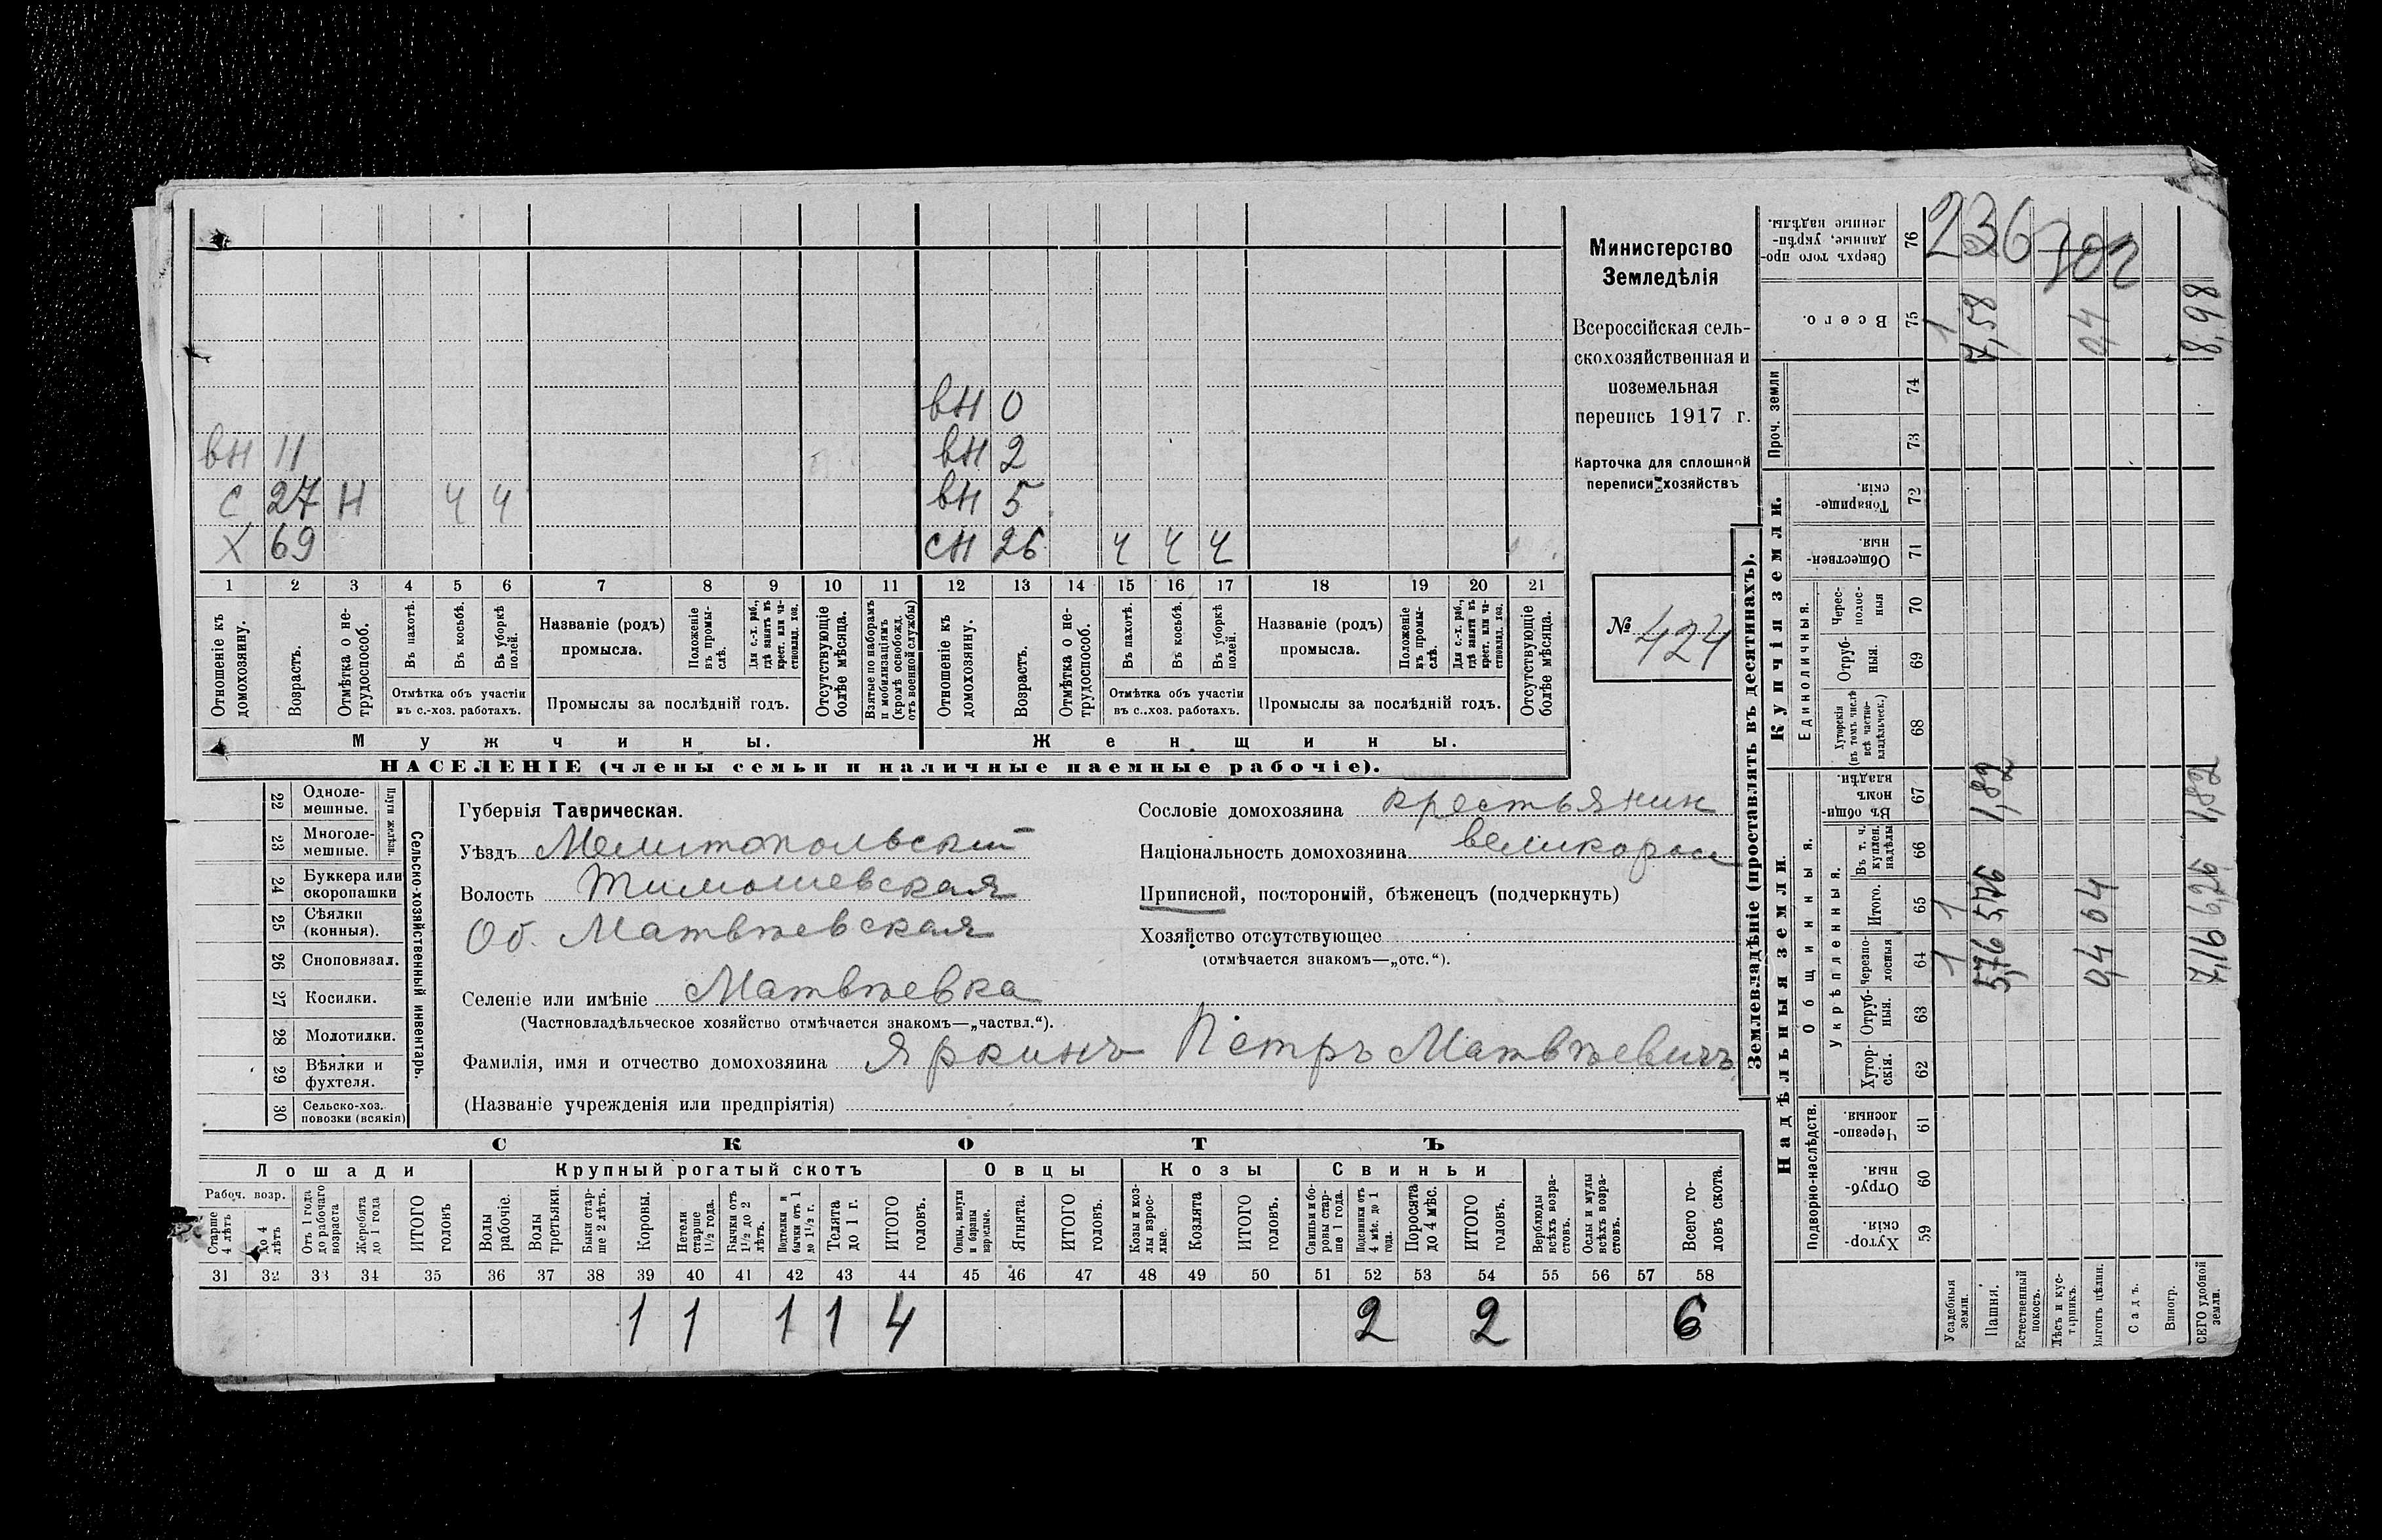 Министерство
Земледѣлія
Всероссійская сель-
скохозяйственная и
поземельная
перепись 1917 г.
Карточка для сплошной
переписи хозяйствъ
№ 424
вН 0
вН 11 вН 2
С 27 Н Ч Ч вН 5
Х 69 СН 26 Ч Ч Ч
1 2 3 4 5 6 7 8 9 10 11 12 13 14 15 16 17 18 19 20 21
Отношеніе къ домохозяину.
Возрастъ.
Отмѣтка о не-трудоспособ.
Въ пахотѣ.
Въ косьбѣ.
Въ уборкѣ полей.
Отмѣтка объ участіи
въ с.-хоз. работахъ.
Названіе (родъ)
промысла.
Положеніе въ промы-слѣ.
Для с.-х. раб., гдѣ занятъ въ крест. или ча-стновлад. хоз.
Промыслы за послѣдній годъ.
Отсутствующіе болѣе мѣсяца.
Взятые по наборамъ и мобилизаціямъ (кромѣ освобожд. отъ военной службы)
Отношеніе къ домохозяину.
Возрастъ.
Отмѣтка о не-трудоспособ.
Въ пахотѣ.
Въ косьбѣ.
Въ уборкѣ полей.
Отмѣтка объ участіи
въ с.-хоз. работахъ.
Названіе (родъ)
промысла.
Положеніе въ промы-слѣ.
Для с.-х. раб., гдѣ занята въ крест. или ча-стновлад. хоз.
Промыслы за послѣдній годъ.
Отсутствующіе болѣе мѣсяца.
Мужчины. Женщины.
НАСЕЛЕНІЕ (члены семьи и наличные наемные рабочіе).
22 Одноле-мешные.
23 Многоле-мешные.
Плуги желѣзн.
24 Буккера или скоропашки
25 Сѣялки (конныя).
26 Сноповязал.
27 Косилки.
28 Молотилки.
29 Вѣялки и фухтеля.
30 Сельско-хоз. повозки (всякія)
Сельско-хозяйственный инвентарь.
Губернія Таврическая.
Уѣздъ Мелитопольский
Волость Тимошевская
Об. Матвѣевская
Селеніе или имѣніе Матвѣевка
(Частновладѣльческое хозяйство отмѣчается знакомъ—„частвл.“).
Фамилія, имя и отчество домохозяина Яркинъ Петръ Матвѣевичъ
(Названіе учрежденія или предпріятія)
Сословіе домохозяина крестьянин
Національность домохозяина великоросс
Приписной, посторонній, бѣженецъ (подчеркнуть)
Хозяйство отсутствующее
(отмѣчается знакомъ—„отс.“).
СКОТЪ
Лошади Крупный рогатый скотъ Овцы Козы Свиньи
Рабоч. возр.
Старше 4 лѣтъ
до 4 лѣтъ
Отъ 1 года до рабочаго возраста
Жеребята до 1 года
ИТОГО головъ
Волы рабочіе.
Волы третьяки.
Быки стар-ше 2 лѣтъ.
Коровы.
Нетели старше 1 1/2 года.
Бычки отъ 1 1/2 до 2 лѣтъ.
Подтелки и бычки отъ 1 до 1 1/2 г.
Телята до 1 г.
ИТОГО головъ.
Овцы, валухи и бараны взрослые.
Ягнята.
ИТОГО головъ.
Козы и коз-лы взрос-лые.
Козлята
ИТОГО головъ.
Свиньи и бо-ровы стар-ше 1 года.
Подсвинки отъ 4 мѣс. до 1 года.
Поросята до 4 мѣс.
ИТОГО головъ.
Верблюды всѣхъ возра-стовъ.
Ослы и мулы всѣхъ возра-стовъ.
Всего го-ловъ скота.
31 32 33 34 35 36 37 38 39 40 41 42 43 44 45 46 47 48 49 50 51 52 53 54 55 56 57 58
1 1 1 1 4 2 2 6
Землевладѣніе (проставлять въ десятинахъ).
Надѣльныя земли. Купчія земли. Проч. земли
Подворно-наслѣдств.
Общинныя.
Укрѣпленныя.
Единоличныя.
Хутор-скія. 59
Отруб-ныя. 60
Черезпо-лосныя. 61
Хутор-скія. 62
Отруб-ныя. 63
Черезпо-лосныя 64
Итого. 65
Въ т. ч. куплен. надѣлы 66
Въ общи-номъ владѣн. 67
Хуторскія (въ томъ числѣ всѣ частно-владѣльческ.) 68
Отруб-ныя. 69
Черес-полос-ныя 70
Обществен-ныя. 71
Товарище-скія. 72
73
74
Всего. 75
Сверхъ того про-данные, укрѣп-ленные надѣлы. 76
Усадебныя земли. 1 1 1
Пашня. 5,76 5,76 1,82 7,58
Естественный покосъ.
Лѣсъ и кус-тарникъ.
Выгонъ цѣлин. 0,4 0,4 0,4
Садъ.
Виногр.
ВСЕГО удобной земли. 7,16 1,82 8,98
236
702